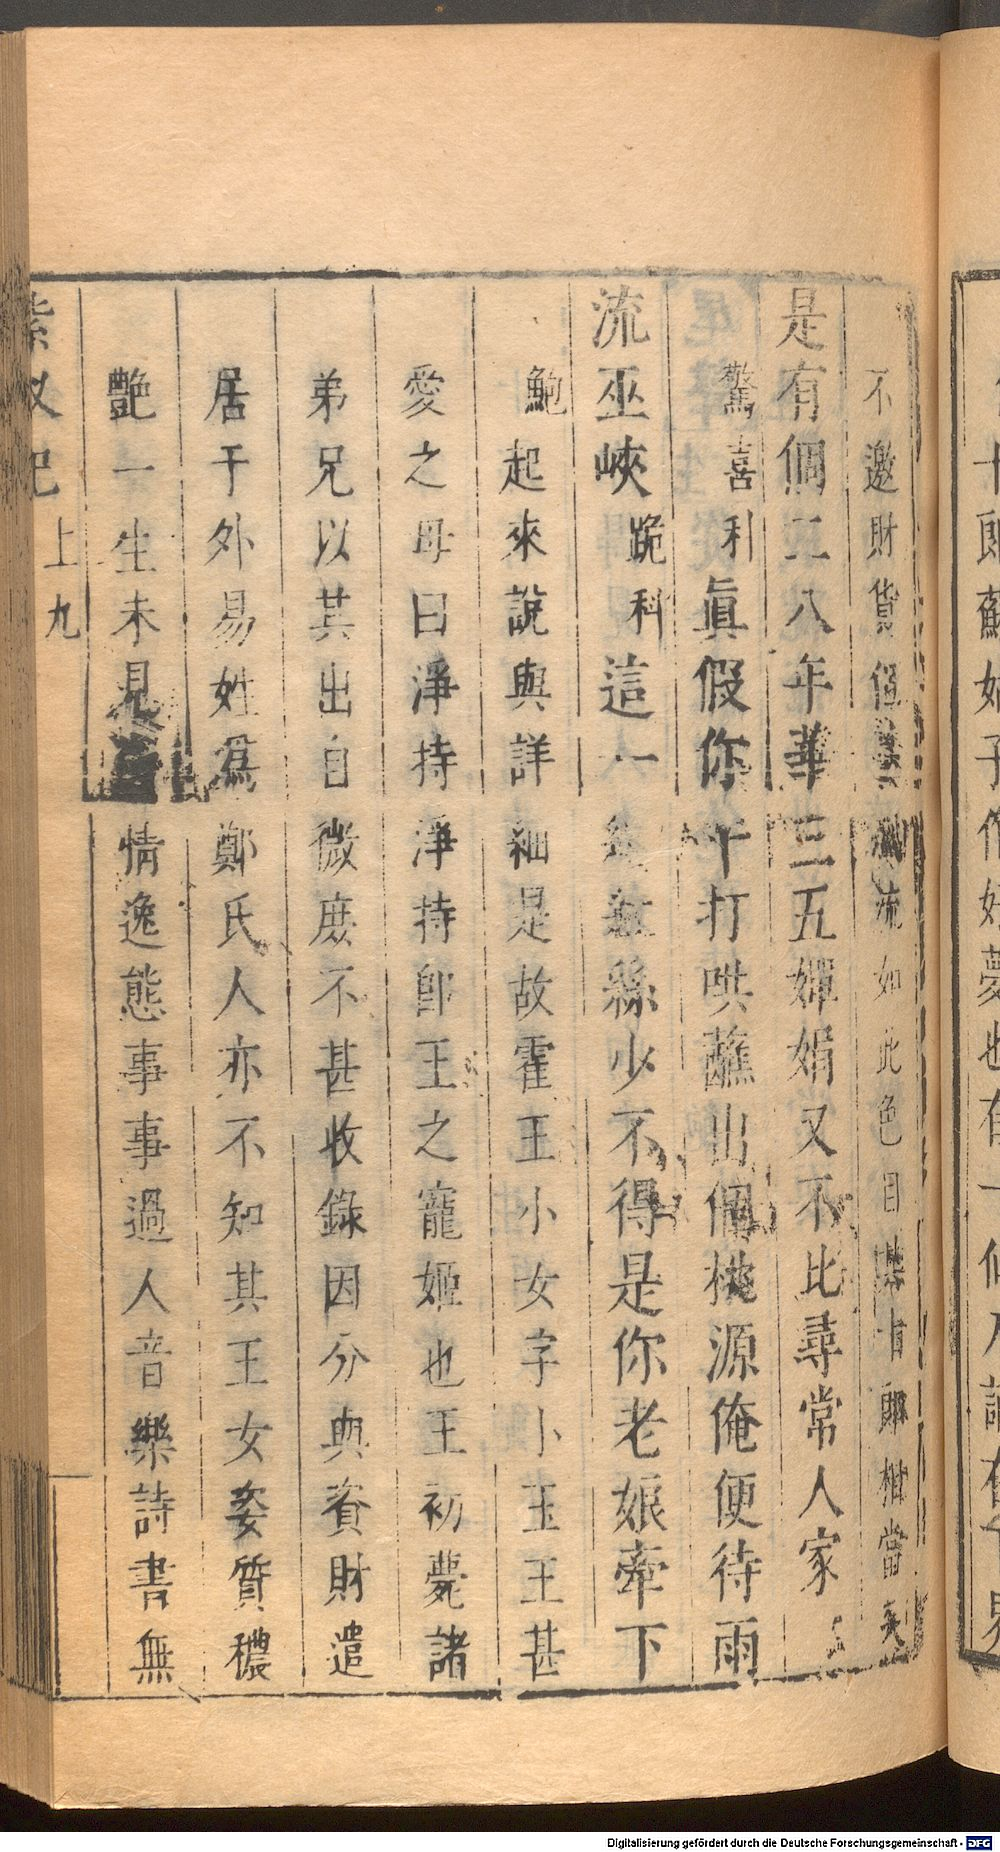 十郎蘇姑子作好夢也有一仙人謫在下界
不邀財貨但慕風流如此色目共十郎相當矣
是有個二八年華三五嬋娟又不比尋常人家
驚喜利真假你干打哄蘸出個桃源俺便待雨
流巫峽跪科這一紅絲少不得是你老娘牽下
鮑起來說與詳細是故霍王小女字小玉王甚
愛之母曰淨持淨持卽王之寵姬也王初薨諸
弟兄以其出自微庶不甚收錄因分與資財遣
居于外易姓爲鄭氏人亦不知其王女姿質穠
艷一生未見情逸態事事過人音樂詩書無
紫釵記 上 九
Digitalisierung gefördert durch die Deutsche Forschungsgemeinschaft - DFG